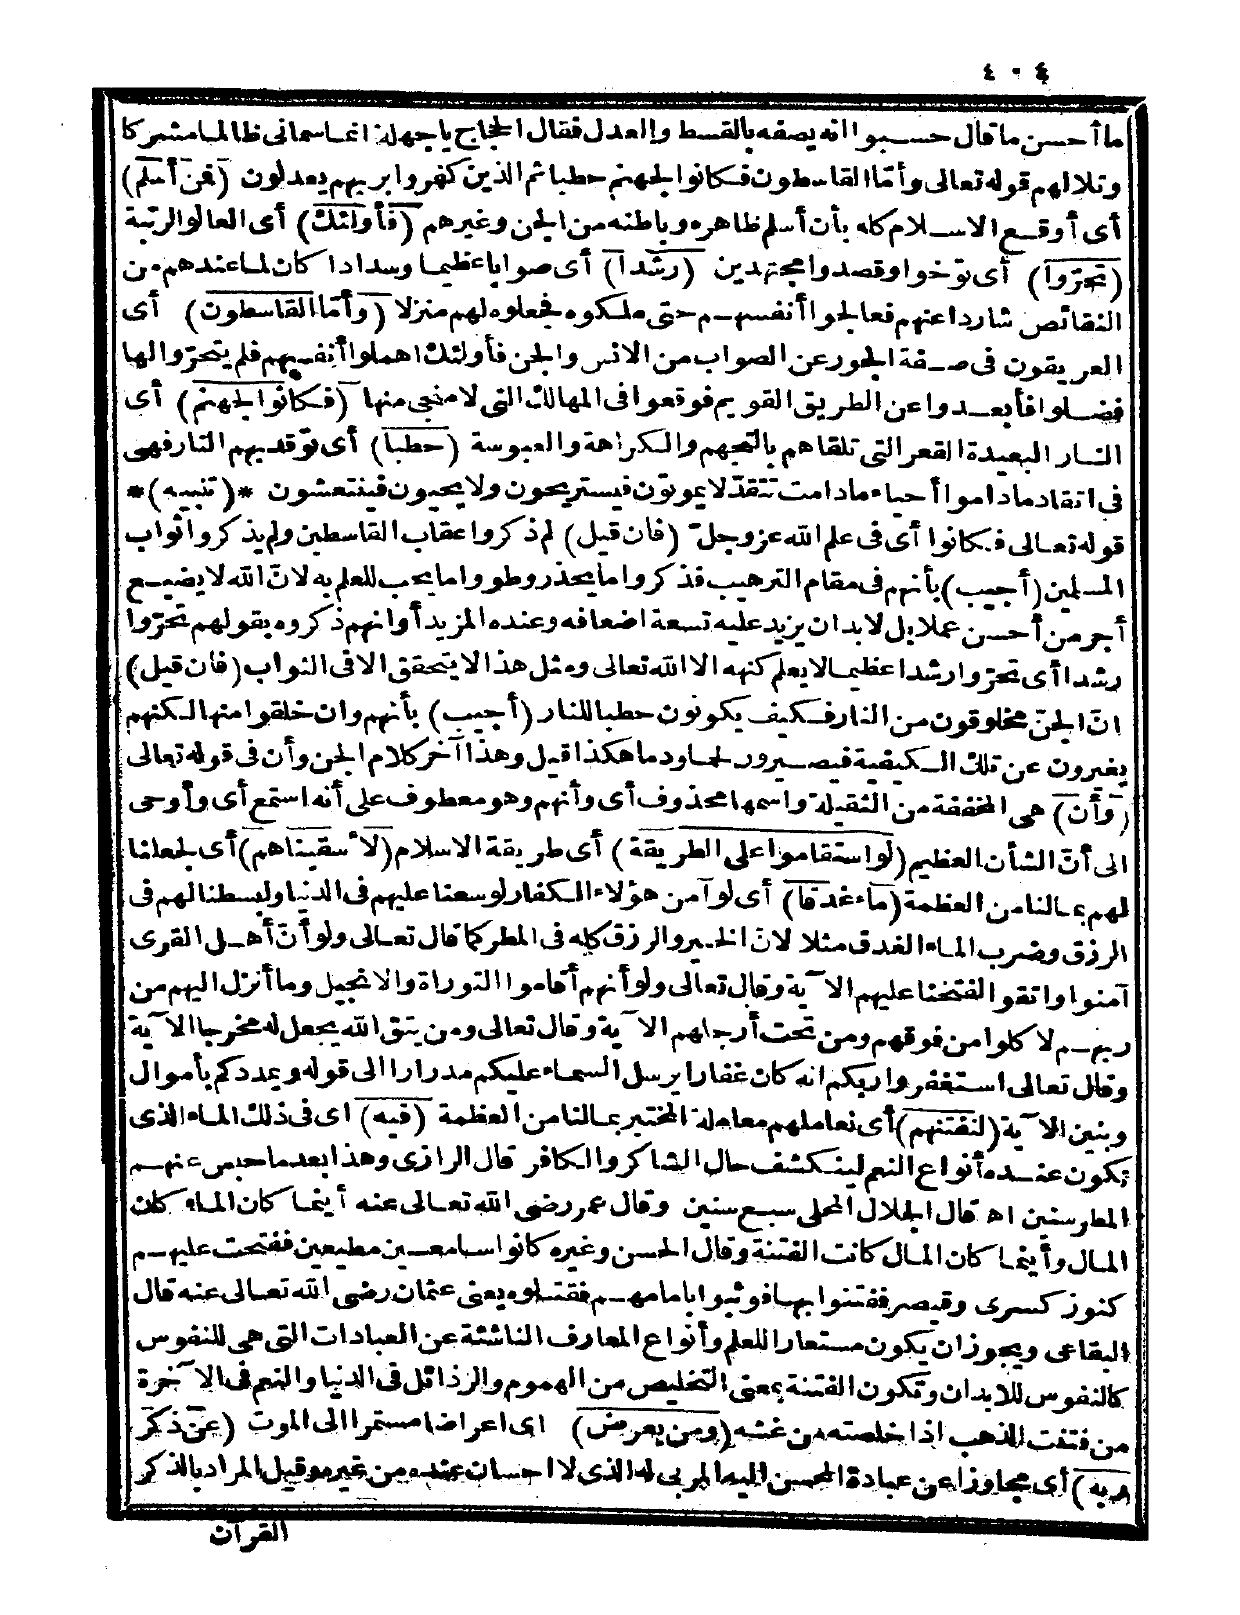 ٤٠٤
ما أحسن ما قال حسبوا انه يصفه بالقسط والعدل فقال الحجاج يا جهلة انما سمانى ظالما مشركا
وتلا لهم قوله تعالى وأمّا القاسطون فكانوا لجهنم حطبا ثم الذين كفروا بربهم يعدلون (فمن أسلم)
أى أوقع الاسلام كله بأن أسلم ظاهره وباطنه من الجن وغيرهم (فأولئك) أى العالو الرتبة
(تحرّوا) أى توخوا وقصدوا مجتهدين (رشدا) أى صوابا عظيما وسدادا كان لما عندهم من
النقائص شاردا عنهم فعالجوا أنفسهم حتى ملكوه فجعلوه لهم منزلا (وأمّا القاسطون) أى
العريقون فى صفة الجور عن الصواب من الانس والجن فأولئك اهملوا أنفسهم فلم يتحرّوا لها
فضلوا فأبعدوا عن الطريق القويم فوقعوا فى المهالك التى لا منجى منها (فكانوا لجهنم) أى
النار البعيدة القعر التى تلقاهم بالتجهم والكراهة والعبوسة (حطبا) أى توقد بهم النار فهى
فى اتقاد ما داموا أحياء ما دامت تتقد لا يموتون فيستريحون ولا يحيون فينتعشون *(تنبيه)*
قوله تعالى فكانوا أى فى علم الله عز وجل (فان قيل) لم ذكروا عقاب القاسطين ولم يذكروا ثواب
المسلمين (أجيب) بأنهم فى مقام الترهيب فذكروا ما يحذر وطووا ما يحب للعلم به لانّ الله لا يضيع
أجر من أحسن عملا بل لا بد ان يزيد عليه تسعة اضعافه وعنده المزيد أو انهم ذكروه بقولهم تحرّوا
رشدا أى تحرّوا رشدا عظيما لا يعلم كنهه الا الله تعالى ومثل هذا لا يتحقق الا فى الثواب (فان قيل)
انّ الجنّ مخلوقون من النار فكيف يكونون حطبا للنار (أجيب) بأنهم وان خلقوا منها لكنهم
يغيرون عن تلك الكيفية فيصيرون لحما ودما هكذا قيل وهذا آخر كلام الجن وأن فى قوله تعالى
(وأن) هى المخففة من الثقيلة واسمها محذوف أى وأنهم وهو معطوف على أنه استمع أى وأوحى
الى أنّ الشأن العظيم (لو استقاموا على الطريقة) أى طريقة الاسلام (لأسقيناهم) أى لجعلنا
لهم بما لنا من العظمة (ماء غدقا) أى لو آمن هؤلاء الكفار لوسعنا عليهم فى الدنيا ولبسطنا لهم فى
الرزق وضرب الماء الغدق مثلا لانّ الخير والرزق كله فى المطر كما قال تعالى ولو أنّ أهل القرى
آمنوا واتقوا لفتحنا عليهم الآية وقال تعالى ولو أنهم أقاموا التوراة والانجيل وما أنزل اليهم من
ربهم لاكلوا من فوقهم ومن تحت أرجلهم الآية وقال تعالى ومن يتق الله يجعل له مخرجا الآية
وقال تعالى استغفروا ربكم انه كان غفارا يرسل السماء عليكم مدرارا الى قوله ويمددكم بأموال
وبنين الآية (لنفتنهم) أى نعاملهم معاملة المختبر بما لنا من العظمة (فيه) اى فى ذلك الماء الذى
تكون عنده أنواع النعم لينكشف حال الشاكر والكافر قال الرازى وهذا بعد ما حبس عنهم
المطر سنين اه قال الجلال المحلى سبع سنين وقال عمر رضى الله تعالى عنه أينما كان الماء كان
المال وأينما كان المال كانت الفتنة وقال الحسن وغيره كانوا سامعين مطيعين ففتحت عليهم
كنوز كسرى وقيصر ففتنوا بها فوثبوا بامامهم فقتلوه يعنى عثمان رضى الله تعالى عنه قال
البقاعى ويجوز ان يكون مستعارا للعلم وأنواع المعارف الناشئة عن العبادات التى هى للنفوس
كالنفوس للابدان وتكون الفتنة بمعنى التخليص من الهموم والرذائل فى الدنيا والنعم فى الآخرة
من فتنت الذهب اذا خلصته من غشه (ومن يعرض) اى اعراضا مستمرا الى الموت (عن ذكر
ربه) أى مجاوزا عن عبادة المحسن اليه المربى له الذى لا احسان عنده من غيره وقيل المراد بالذكر
القرآن